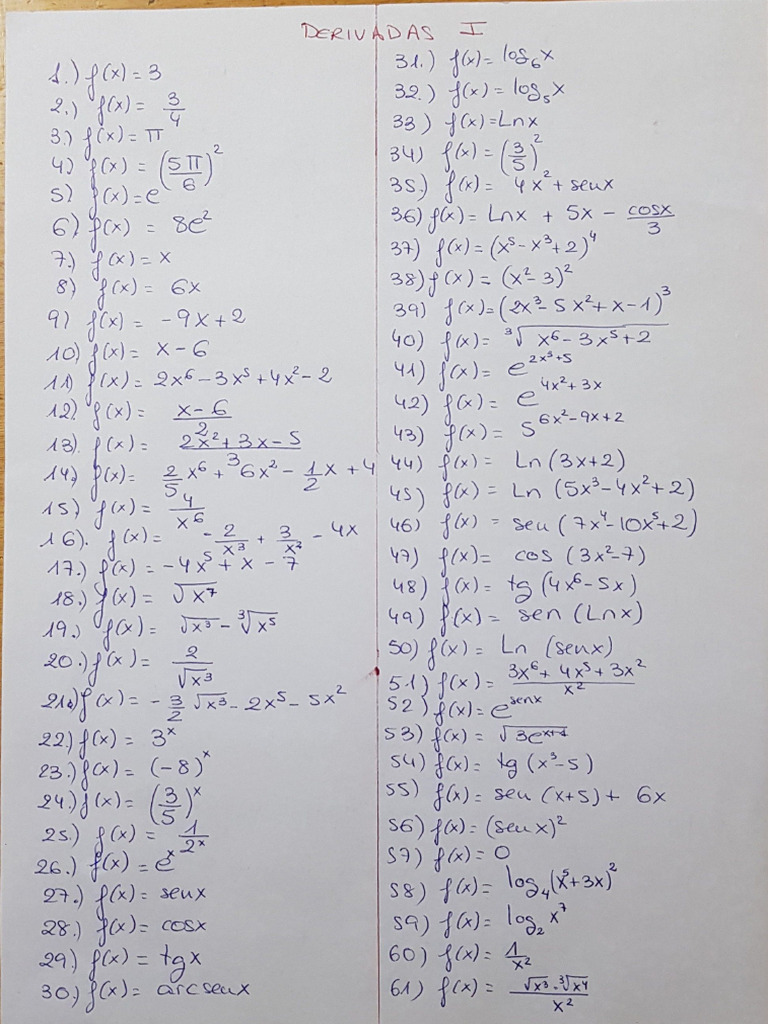 DERIVADAS I
1.) f(x) = 3
2.) f(x) = 3/4
3.) f(x) = π
4) f(x) = (5π/6)²
5) f(x) = e
6) f(x) = 8e²
7.) f(x) = x
8) f(x) = 6x
9) f(x) = -9x+2
10) f(x) = x-6
11) f(x) = 2x⁶-3x⁵+4x²-2
12) f(x) = (x-6)/2
13. f(x) = (2x²+3x-5)/3
14) f(x) = 2/5 x⁶ + 6x² - 1/2 x + 4
15) f(x) = 4/x⁶
16). f(x) = -2/x³ + 3/x² - 4x
17.) f(x) = -4x⁵ + x - 7
18.) f(x) = √x⁷
19.) f(x) = √x³ - ³√x⁵
20.) f(x) = 2/√x³
21.) f(x) = -3/2 √x³ - 2x⁵ - 5x²
22.) f(x) = 3ˣ
23.) f(x) = (-8)ˣ
24.) f(x) = (3/5)ˣ
25.) f(x) = 1/2ˣ
26.) f(x) = eˣ
27.) f(x) = senx
28.) f(x) = cosx
29.) f(x) = tgx
30.) f(x) = arcsenx
31.) f(x) = log₆x
32.) f(x) = log₅x
33) f(x) = Lnx
34) f(x) = (3/5)²
35.) f(x) = 4x² + senx
36) f(x) = Lnx + 5x - cosx/3
37) f(x) = (x⁵-x³+2)⁴
38) f(x) = (x²-3)²
39) f(x) = (2x³-5x²+x-1)³
40) f(x) = ³√(x⁶-3x⁵+2)
41) f(x) = e^(2x³+5)
42) f(x) = e^(4x²+3x)
43) f(x) = 5^(6x²-9x+2)
44) f(x) = Ln (3x+2)
45) f(x) = Ln (5x³-4x²+2)
46) f(x) = sen (7x⁴-10x⁵+2)
47) f(x) = cos (3x²-7)
48) f(x) = tg (4x⁶-5x)
49) f(x) = sen (Lnx)
50) f(x) = Ln (senx)
51) f(x) = (3x⁶+4x⁵+3x²)/x²
52) f(x) = e^senx
53) f(x) = √(3e^(x+1))
54) f(x) = tg (x³-5)
55) f(x) = sen (x+5) + 6x
56) f(x) = (senx)²
57) f(x) = 0
58) f(x) = log₄(x⁵+3x)²
59) f(x) = log₂x⁷
60) f(x) = 1/x²
61) f(x) = (√x³·³√x⁴)/x²